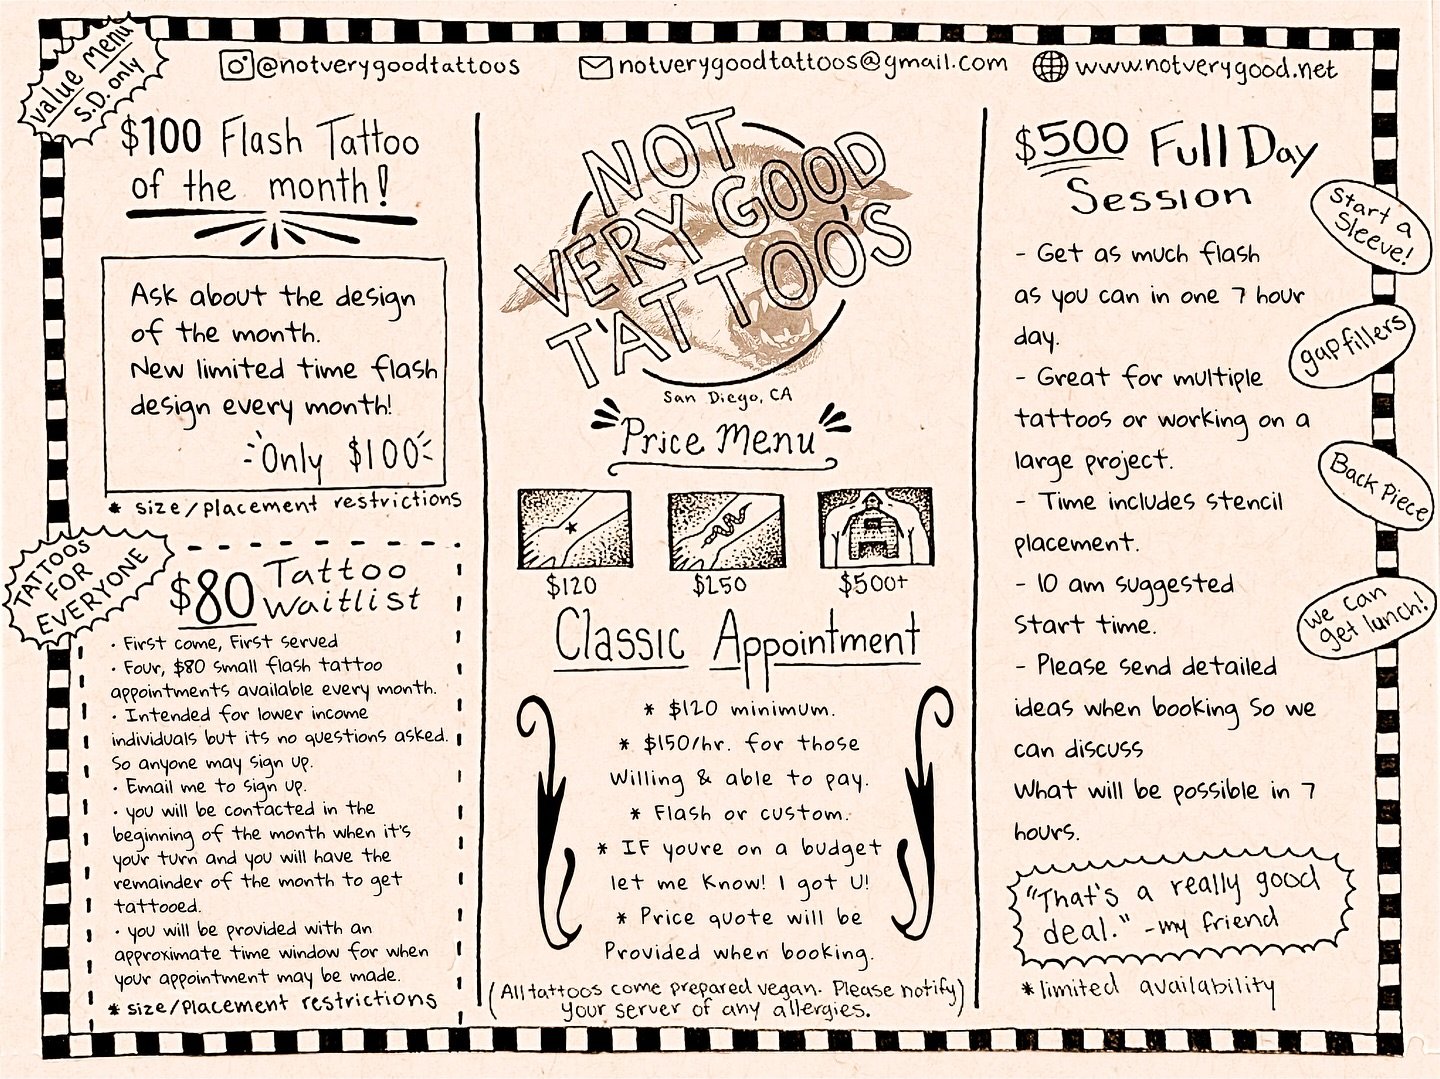 value Menu
S.D. only
@notverygoodtattoos
notverygoodtattoos@gmail.com
www.notverygood.net
$100 Flash Tattoo
of the month!
Ask about the design
of the month.
New limited time flash
design every month!
Only $100
* size/placement restrictions
TATTOOS
FOR
EVERYONE
$80 Tattoo
Waitlist
· First come, First served
· Four, $80 small flash tattoo
appointments available every month.
· Intended for lower income
individuals but its no questions asked.
So anyone may sign up.
· Email me to sign up.
· you will be contacted in the
beginning of the month when it's
your turn and you will have the
remainder of the month to get
tattooed.
· you will be provided with an
approximate time window for when
your appointment may be made.
* size/Placement restrictions
NOT
VERY GOOD
TATTOOS
San Diego, CA
Price Menu
$120
$250
$500+
Classic Appointment
* $120 minimum.
* $150/hr. for those
Willing & able to pay.
* Flash or custom.
* IF youre on a budget
let me Know! I got U!
* Price quote will be
Provided when booking.
(All tattoos come prepared vegan. Please notify)
your server of any allergies.
$500 Full Day
Session
- Get as much flash
as you can in one 7 hour
day.
- Great for multiple
tattoos or working on a
large project.
- Time includes stencil
placement.
- 10 am suggested
Start time.
- Please send detailed
ideas when booking So we
can discuss
What will be possible in 7
hours.
Start a
Sleeve!
gapfillers
Back Piece
We can
get lunch!
"That's a really good
deal." -my friend
*limited availability